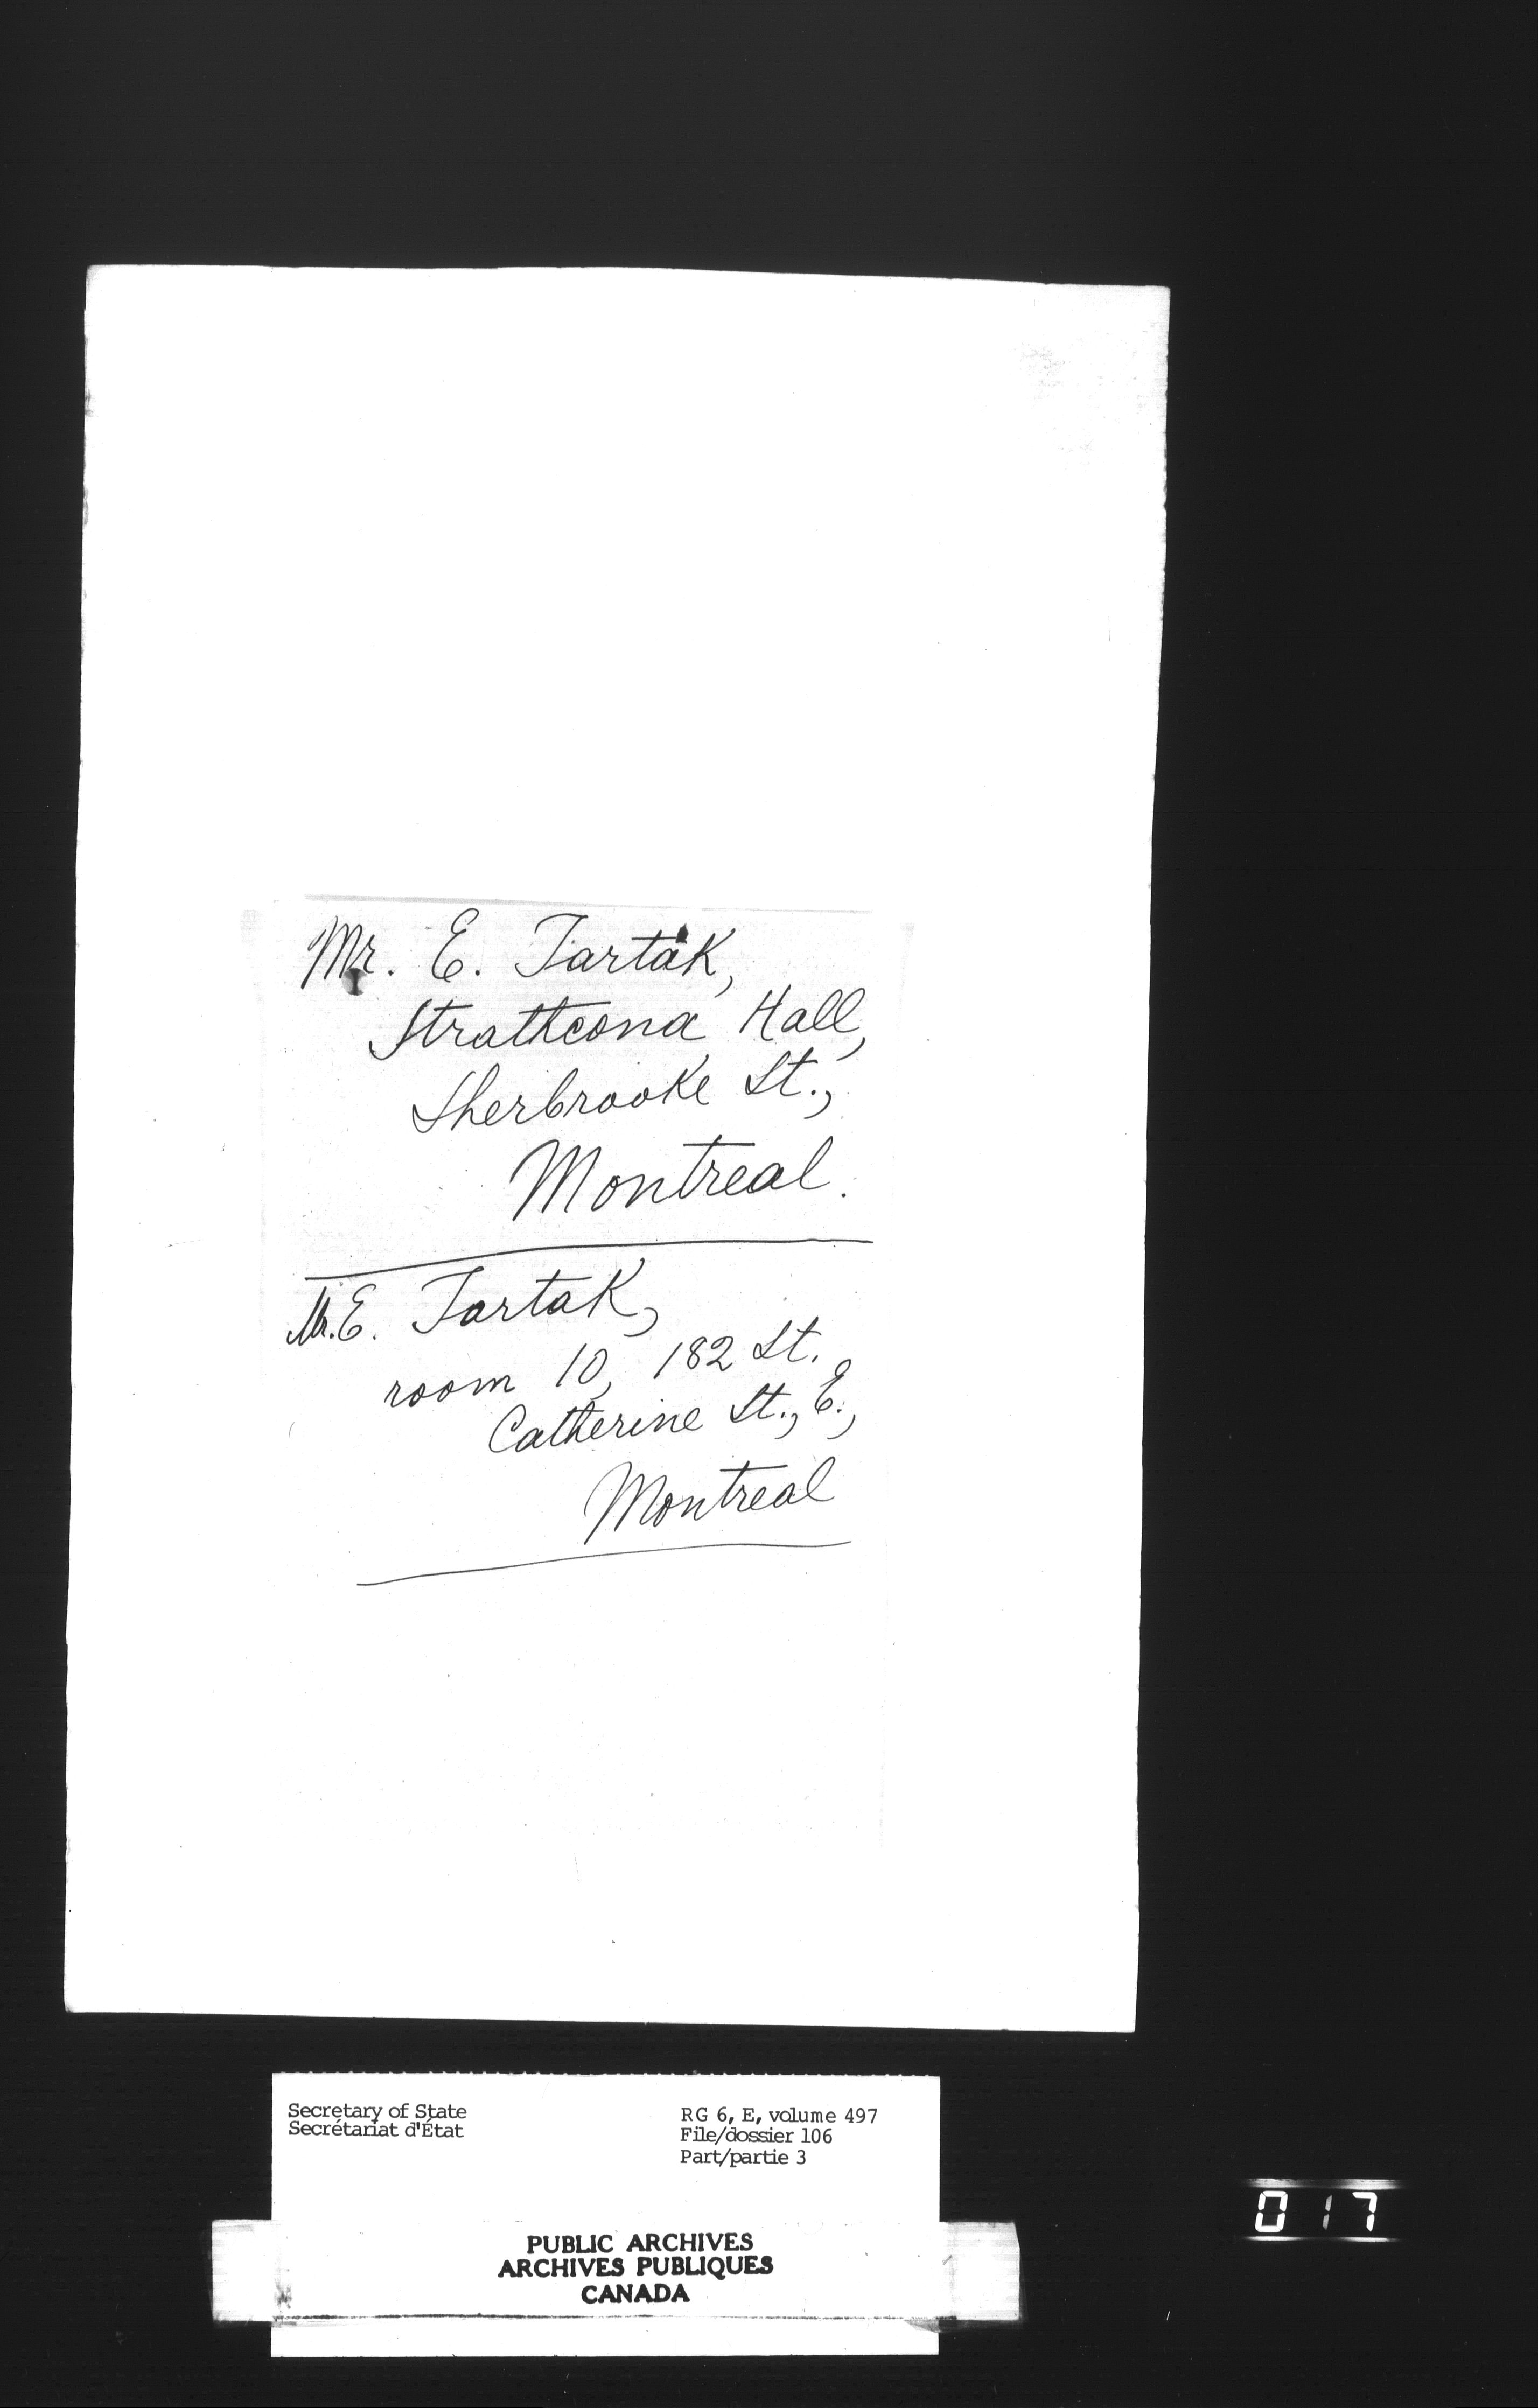 Mr. E. Tartak,
Strathcona Hall,
Sherbrooke St.,
Montreal.
Mr. E. Tartak,
room 10, 182 St.
Catherine St., E.,
Montreal
Secretary of State
Secrétariat d'État
RG 6, E, volume 497
File/dossier 106
Part/partie 3
PUBLIC ARCHIVES
ARCHIVES PUBLIQUES
CANADA
017